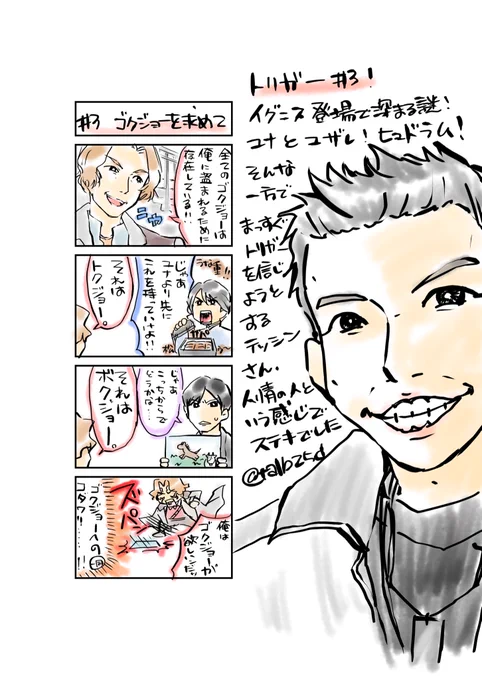 トリガー#3!
イグニス登場で深まる謎!
ユナとユザレ!ヒュドラム!
そんな
一方で
まっすぐ
トリガー
を信じ
ようと
する
テッシン
さん。
人情の人と
いう感じで
ステキでした
#3 ゴクジョーを求めて
全てのゴクジョーは
俺に盗まれるために
存在している!!
ニヤ
うな重!!
じゃあ
ユナより先に
これを持っていけよ!!
それは
トクジョー。
じゃあ
こっちからで
どうかな…
それは
ボクジョー。
俺は
ゴクジョーが
欲しいんだ!
ズバン
ゴクジョーへの
コダワリ…!!